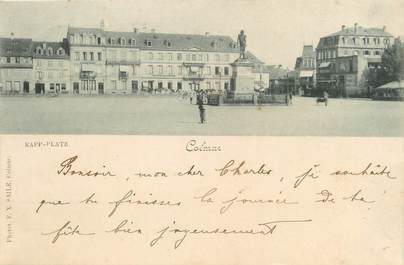 RAPP-PLATZ
Colmar
Bonsoir, mon cher Charles, je souhaite
que tu finisses la journée de ta
fête bien joyeusement
Photot. F. X. SAILE, Colmar.